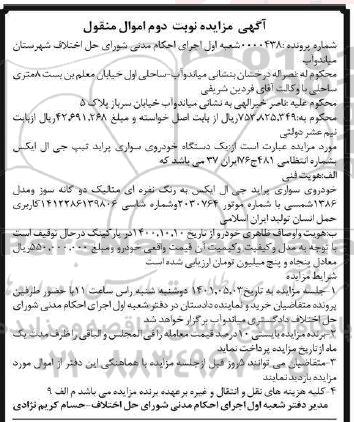 آگهی مزایده نوبت دوم اموال منقول
شماره پرونده :۰۰۰۰۴۳۸شعبه اول اجرای احکام مدنی شورای حل اختلاف شهرستان
میاندواب
محکوم له :نصراله درخشان بنشانی میاندوآب-ساحلی اول خیابان معلم بن بست ۸متری
ساحلی با وکالت آقای فردین شریفی
محکوم علیه :ناصر خیرالهی به نشانی میاندوآب خیابان سرباز پلاک ۵
محکوم به :۷۵۳،۸۲۵،۳۴۹ریال از بابت اصل خواسته و مبلغ ۴۲،۶۹۱،۲۶۸ ریال ازبابت
نیم عشر دولتی
مورد مزایده عبارت است از:یک دستگاه خودروی سواری پراید تیپ جی ال ایکس
بشماره انتظامی ۴۸۱ج۷۶ایران ۳۷ می باشد که
الف:هویت فنی
خودروی سواری پراید جی ال ایکس به رنگ نقره ای متالیک دو گانه سوز ومدل
۱۳۸۶شمسی با شماره موتور ۲۰۳۰۷۶۴وشماره شاسی ۱۴۱۲۲۸۶۱۳۹۸۰۶کاربری
حمل انسان تولید ایران اسلامی
ب:هویت واوصاف ظاهری خودرو از تاریخ ۱۴۰۰،۱۰،۱۰در پارکینگ درحال توقیف است
با توجه به مدل وکیفیت وکمیت آن قیمت واقعی خودرو ومبلغ ۵۵۰،۰۰۰،۰۰۰ریال
معادل پنجاه و پنج میلیون تومان ارزیابی شده است
شرایط مزایده
۱-جلسه مزایده به تاریخ ۱۴۰۱،۰۵،۰۳ دوشنبه شنبه راس ساعت ۱۱با حضور طرفین
پرونده متقاضیان خرید و نماینده دادستان در دفترشعبه اول اجرای احکام مدنی شورای
حل اختلاف دادگستری میاندوآب برگزار خواهد شد
۲-برنده مزایده بایستی ۱۰درصد قیمت معامله را فی المجلس و الباقی را ظرف مدت یک
ماه از تاریخ مزایده پرداخت نماید
۳-متقاضیان می توانند ۵روز قبل ازجلسه مزایده با هماهنگی این دفتر از اموال مورد
مزایده بازدید نمایند
۴-کلیه هزینه های نقل و انتقال و غیره برعهده برنده مزایده می باشد م الف ۹
مدیر دفتر شعبه اول اجرای احکام مدنی شورای حل اختلاف-حسام کریم نژادی